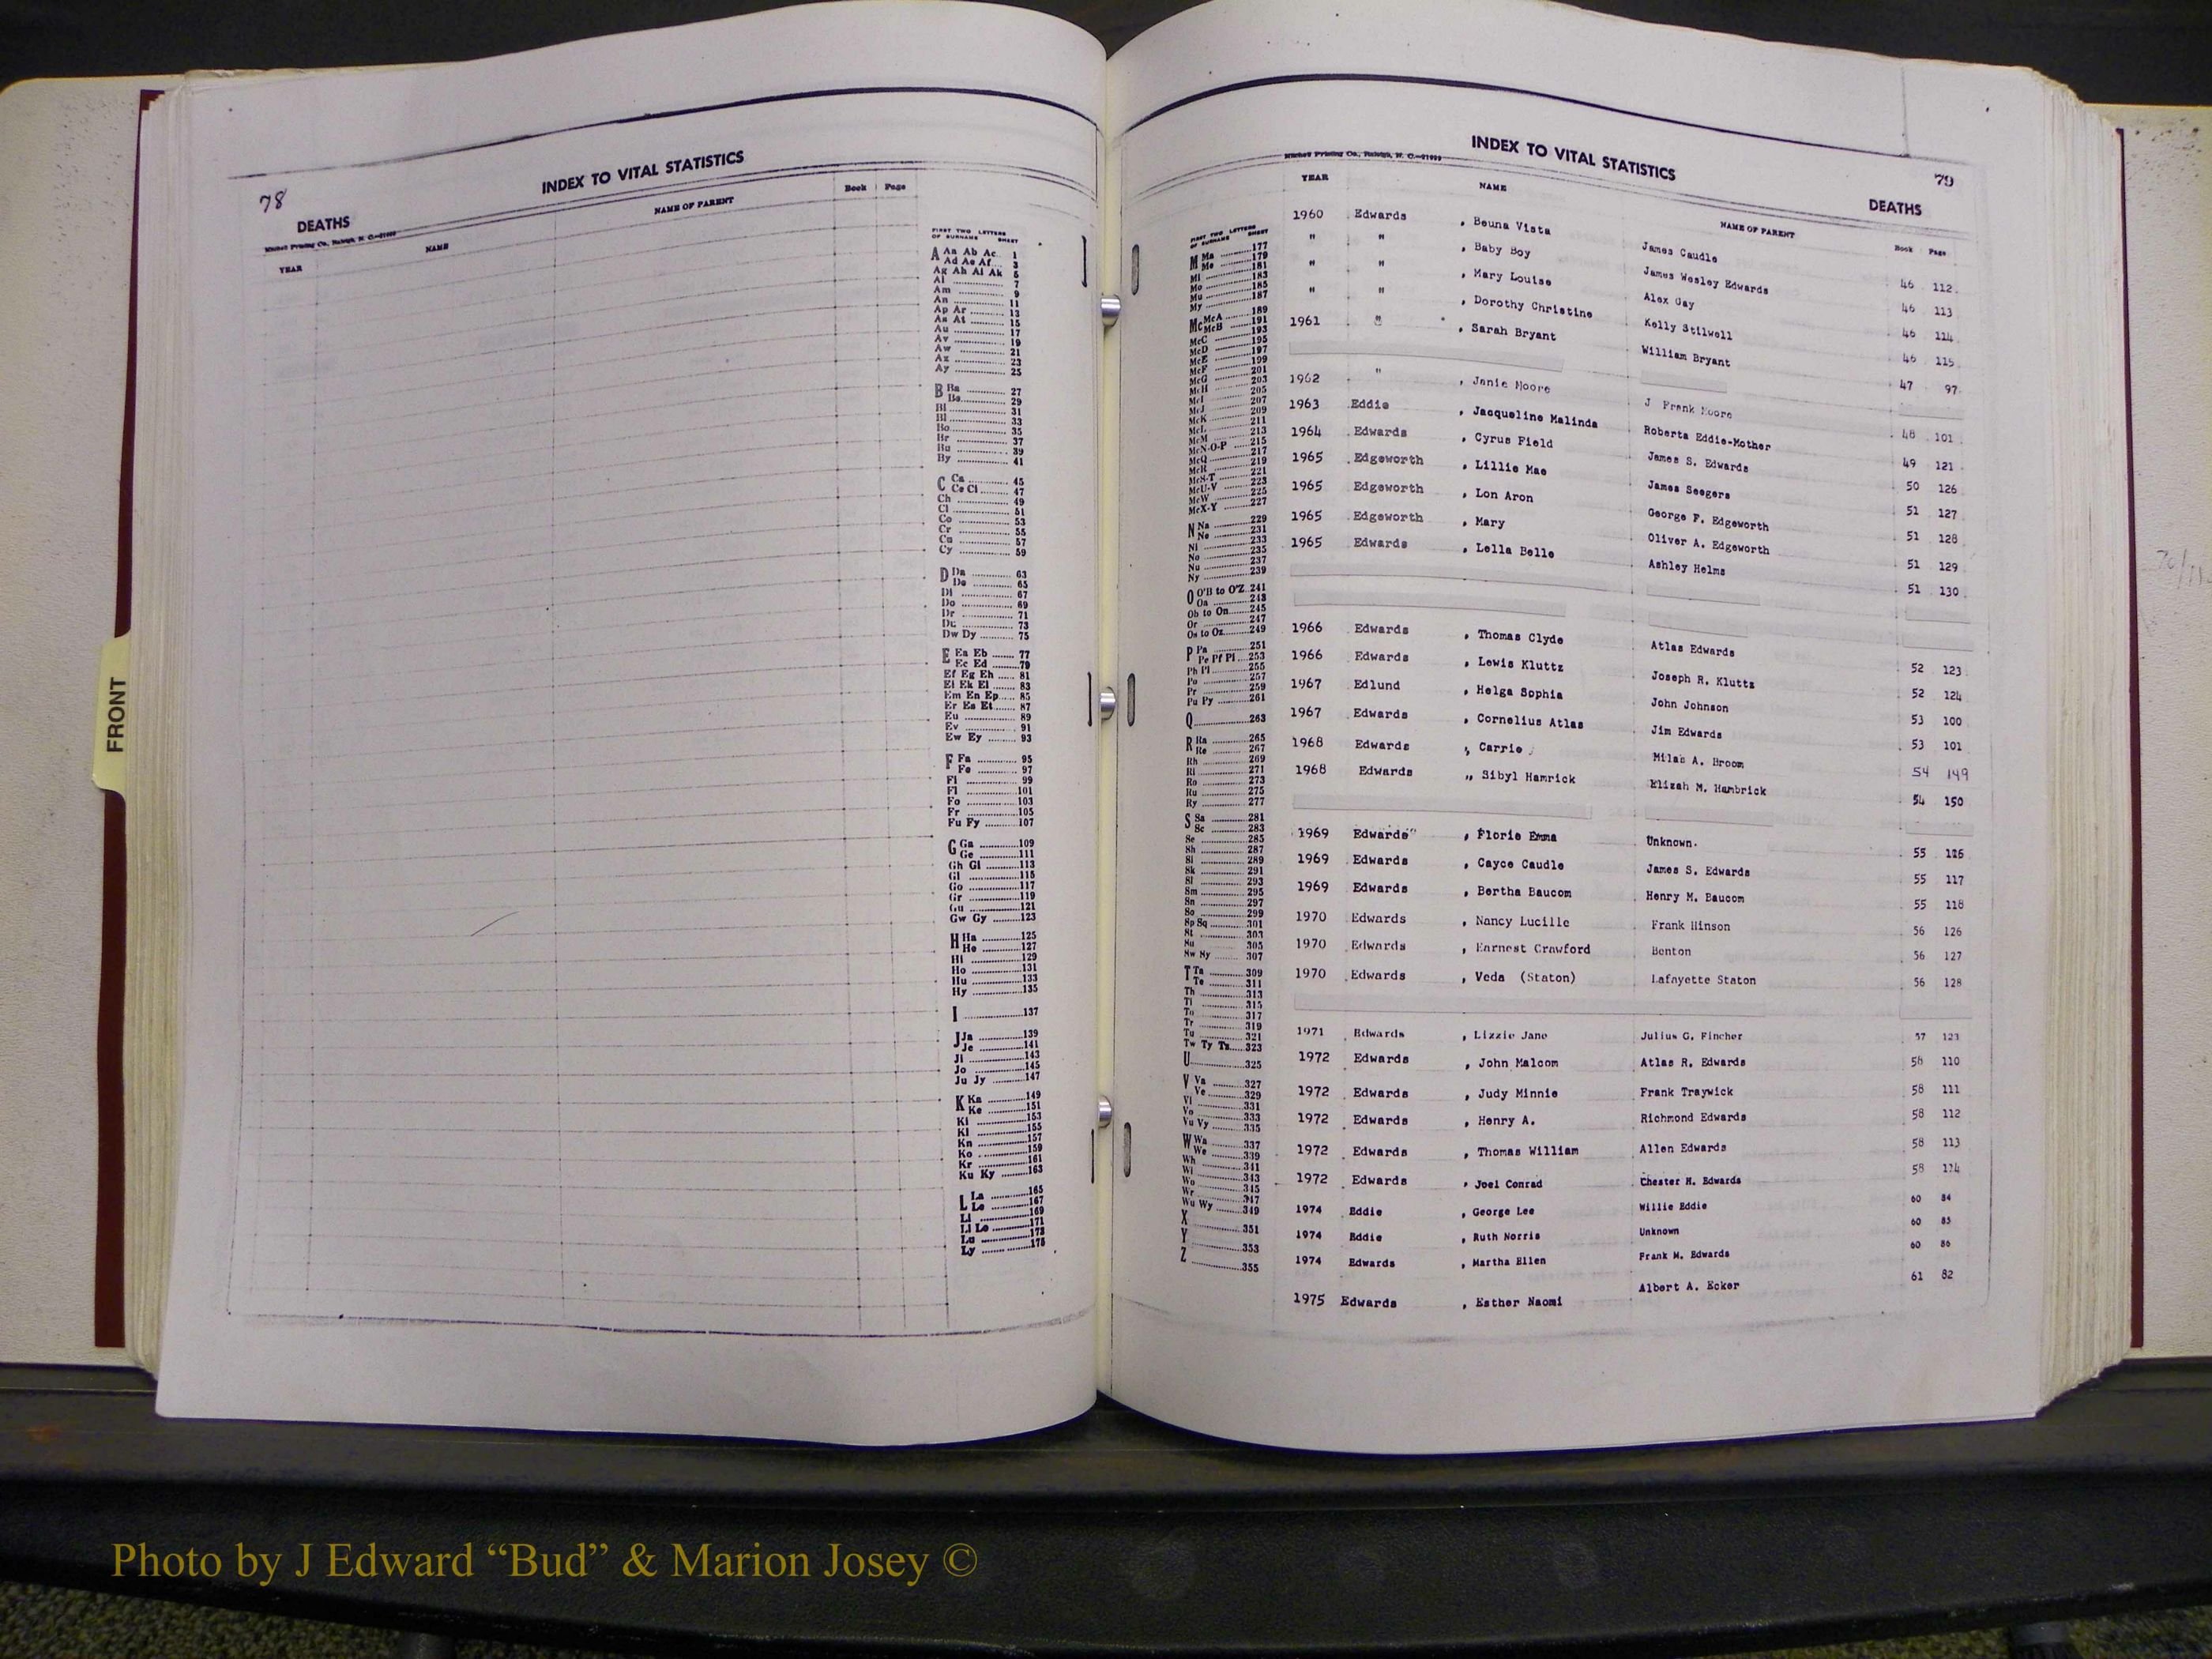 78
INDEX TO VITAL STATISTICS
DEATHS
Mitchell Printing Co., Raleigh, N. C.—21999
YEAR NAME NAME OF PARENT Book Page
FIRST TWO LETTERS OF SURNAME SHEET
A Aa Ab Ac 1
Ad Ae Af 3
Ag Ah Ai Ak 5
Al 7
Am 9
An 11
Ap Ar 13
As At 15
Au 17
Av 19
Aw 21
Ax 23
Ay 25
B Ba 27
Be 29
Bi 31
Bl 33
Bo 35
Br 37
Bu 39
By 41
C Ca 45
Ce Ci 47
Ch 49
Cl 51
Co 53
Cr 55
Cu 57
Cy 59
D Da 63
De 65
Di 67
Do 69
Dr 71
Du 73
Dw Dy 75
E Ea Eb 77
Ec Ed 79
Ef Eg Eh 81
Ei Ek El 83
Em En Ep 85
Er Es Et 87
Eu 89
Ev 91
Ew Ey 93
F Fa 95
Fe 97
Fi 99
Fl 101
Fo 103
Fr 105
Fu Fy 107
G Ga 109
Ge 111
Gh Gi 113
Gl 115
Go 117
Gr 119
Gu 121
Gw Gy 123
H Ha 125
He 127
Hi 129
Ho 131
Hu 133
Hy 135
I 137
J Ja 139
Je 141
Ji 143
Jo 145
Ju Jy 147
K Ka 149
Ke 151
Ki 153
Kl 155
Kn 157
Ko 159
Kr 161
Ku Ky 163
L La 165
Le 167
Li 169
Ll Lo 171
Lu 173
Ly 175
FRONT
INDEX TO VITAL STATISTICS
79
Mitchell Printing Co., Raleigh, N. C.—21999
DEATHS
YEAR NAME NAME OF PARENT Book Page
FIRST TWO LETTERS OF SURNAME SHEET
M Ma 177
Me 179
Mi 181
Mo 183
Mu 185
My 187
Mc McA 189
McB 191
McC 193
McD 195
McE 197
McF 199
McG 201
McH 203
McI 205
McJ 207
McK 209
McL 211
McM 213
McN-O-P 215
McQ 217
McR 219
McS-T 221
McU-V 223
McW 225
McX-Y 227
N Na 229
Ne 231
Ni 233
No 235
Nu 237
Ny 239
O O'B to O'Z 241
Oa 243
Ob to On 245
Or 247
Os to Oz 249
P Pa 251
Pe Pf Pi 253
Ph Pl 255
Po 257
Pr 259
Pu Py 261
Q 263
R Ra 265
Re 267
Rh 269
Ri 271
Ro 273
Ru 275
Ry 277
S Sa 281
Sc 283
Se 285
Sh 287
Si 289
Sk 291
Sl 293
Sm 295
Sn 297
So 299
Sp Sq 301
St 303
Su 305
Sw Sy 307
T Ta 309
Te 311
Th 313
Ti 315
To 317
Tr 319
Tu 321
Tw Ty Tz 323
U 325
V Va 327
Ve 329
Vi 331
Vo 333
Vu Vy 335
W Wa 337
We 339
Wh 341
Wi 343
Wo 345
Wr 347
Wu Wy 349
X 351
Y 353
Z 355
1960 Edwards , Beuna Vista James Caudle 46 112
" " , Baby Boy James Wesley Edwards 46 113
" " , Mary Louise Alex Gay 46 114
" " , Dorothy Christine Kelly Stilwell 46 115
1961 " , Sarah Bryant William Bryant 47 97
1962 " , Janie Moore J Frank Moore 48 101
1963 Eddie , Jacqueline Malinda Roberta Eddie-Mother 49 121
1964 Edwards , Cyrus Field James S. Edwards 50 126
1965 Edgeworth , Lillie Mae James Seegers 51 127
1965 Edgeworth , Lon Aron George F. Edgeworth 51 128
1965 Edgeworth , Mary Oliver A. Edgeworth 51 129
1965 Edwards , Lella Belle Ashley Helms 51 130
1966 Edwards , Thomas Clyde Atlas Edwards 52 123
1966 Edwards , Lewis Kluttz Joseph R. Kluttz 52 124
1967 Edlund , Helga Sophia John Johnson 53 100
1967 Edwards , Cornelius Atlas Jim Edwards 53 101
1968 Edwards , Carrie Milas A. Broom 54 149
1968 Edwards ,, Sibyl Hamrick Elizah M. Hambrick 54 150
1969 Edwards" , Florie Emma Unknown. 55 116
1969 Edwards , Cayce Caudle James S. Edwards 55 117
1969 Edwards , Bertha Baucom Henry M. Baucom 55 118
1970 Edwards , Nancy Lucille Frank Hinson 56 126
1970 Edwards , Earnest Crawford Benton 56 127
1970 Edwards , Veda (Staton) Lafayette Staton 56 128
1971 Edwards , Lizzie Jane Julius G. Fincher 57 123
1972 Edwards , John Malcom Atlas R. Edwards 58 110
1972 Edwards , Judy Minnie Frank Traywick 58 111
1972 Edwards , Henry A. Richmond Edwards 58 112
1972 Edwards , Thomas William Allen Edwards 58 113
1972 Edwards , Joel Conrad Chester H. Edwards 58 114
1974 Eddie , George Lee Willie Eddie 60 84
1974 Eddie , Ruth Norris Unknown 60 85
1974 Edwards , Martha Ellen Frank M. Edwards 60 86
1975 Edwards , Esther Naomi Albert A. Ecker 61 82
Photo by J Edward “Bud” & Marion Josey ©